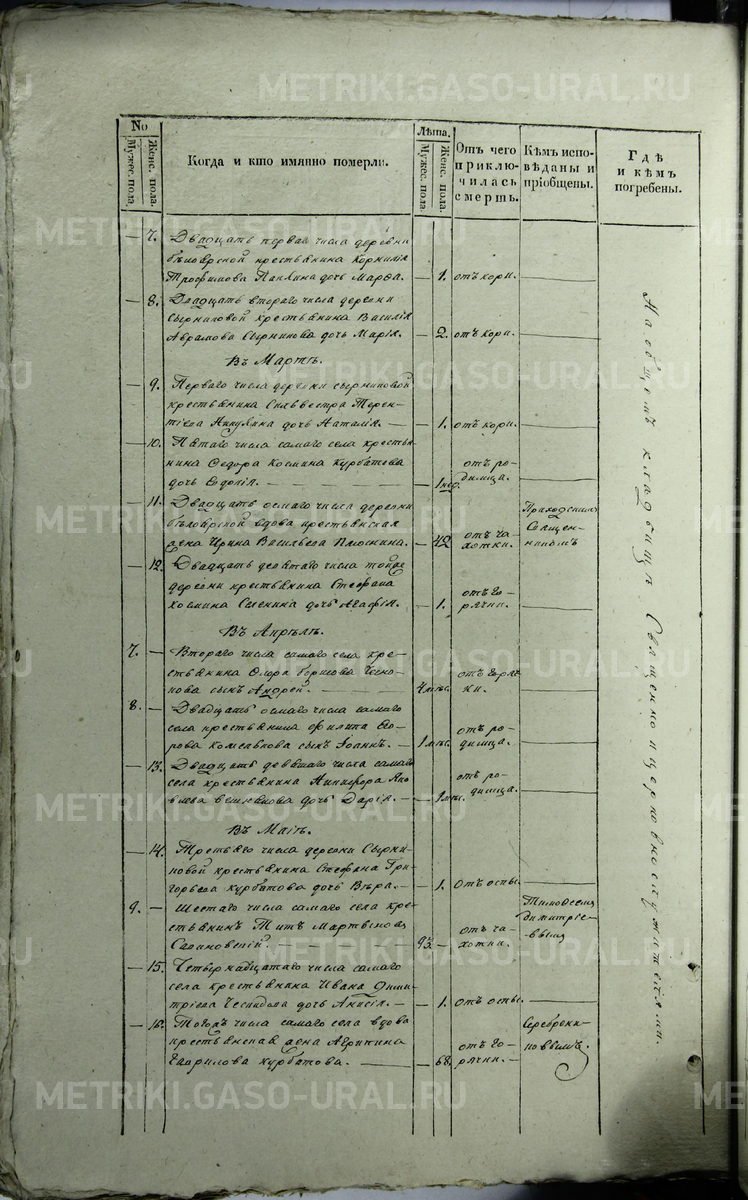 METRIKI.GASO-URAL.RU
No
Мужес. пола.
Женс. пола.
Когда и кто имянно померли.
Лѣта.
Мужес. пола.
Женс. пола.
Отъ чего приклю-
чилась
смерть.
Кѣмъ испо-
вѣданы и
пріобщены.
Гдѣ
и кѣмъ
погребены.
— 7. Двадцать перваго числа деревни
бѣлоярской крестьянина Корнилія
Трофимова дочь Марѳа. — 1. отъ кори. —
— 8. Двадцать втораго числа деревни
Сырниковой крестьянина Василія
Аврамова Сырникова дочь Марія. — 2. отъ кори. —
Въ Мартѣ.
— 9. Перваго числа деревни сырниковой
крестьянина Сильвестра Терен-
тіева Никулина дочь Наталія. — 1. отъ кори. —
— 10. Пятаго числа самаго села кресть-
янина Ѳедора Космина Курбатова
дочь Евдокія. — 1 нед. отъ ро-
димца. —
— 11. Двадцать осмаго числа деревни
бѣлоярской вдова крестьянская
жена Ирина Васильева — 42 отъ ча-
хотки. Приходскимъ
Священ-
никомъ
— 12. Двадцать девятаго числа тойже
деревни крестьянина Стефана
Космина дочь Агафія. — 1. отъ го-
рячки. —
Въ Апрѣлѣ.
7. — Втораго числа самаго села кре-
стьянина Борисова
сынъ Андрей. — 4 мѣс. отъ горяч-
ки. —
8. — Двадцать осмаго числа самаго
села крестьянина Филипа Его-
рова сынъ Іоаннъ. — 1 мѣс. отъ ро-
димца. —
— 13. Двадцать девятаго числа самаго
села крестьянина Никифора Яко-
влева дочь Дарія. — отъ ро-
димца. —
Въ Маіѣ.
— 14. Третьяго числа деревни Сырни-
ковой крестьянина Стефана Гри-
горьева Курбатова дочь Вѣра. — 1. отъ оспы. —
9. — Шестаго числа самаго села кре-
стьянинъ Титъ Мартыновъ
— 93. — отъ ча-
хотки. Тимоѳеемъ
Димитріе-
вымъ
— 15. Четырнадцатаго числа самаго
села крестьянина Ивана Дими-
тріева дочь Анисія. — 1. отъ оспы. —
— 16. Тогожъ числа самаго села вдова
крестьянская жена Агрипина
Гаврилова Курбатова. — 68. отъ го-
рячки. — Серебрени-
ковымъ.
На общемъ кладбищѣ Священноцерковнослужителями.